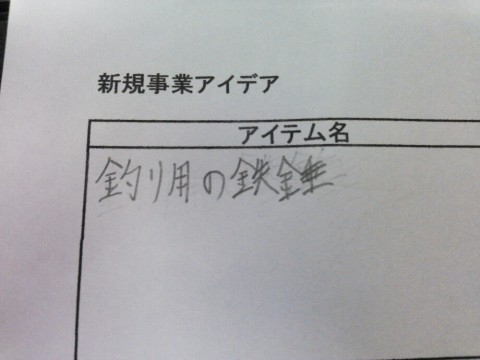 新規事業アイデア
アイテム名
釣り用の鉄錘